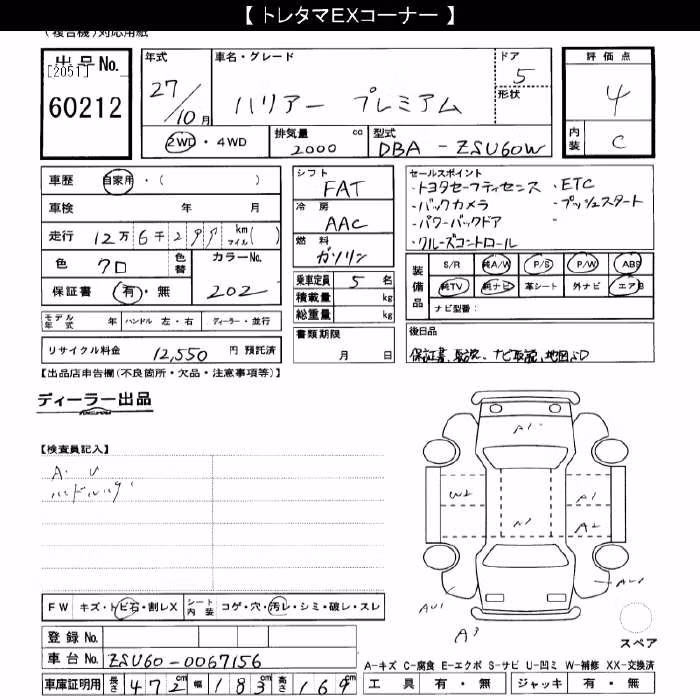 【 トレタマEXコーナー 】
(複合機)対応用紙
出品No.
[2051]
60212
年式
27/10月
車名・グレード
ハリアー プレミアム
ドア
5
形状
評価点
4
内装
C
2WD・4WD
排気量 cc
2000
型式
DBA-ZSU60W
車歴 自家用・( )
車検 年 月
走行 12万6千299 km マイル( )
色 クロ 色替
カラーNo.
202
保証書 有・無
モデル年式 年 ハンドル 左・右 ディーラー・並行
リサイクル料金 12,550 円 預託済
シフト
FAT
冷房
AAC
燃料
ガソリン
乗車定員 5 名
積載量 kg
総重量 kg
書類期限
月 日
セールスポイント
・トヨタセーフティセンス ・ETC
・バックカメラ ・プッシュスタート
・パワーバックドア ・
・クルーズコントロール
装備品
S/R 純A/W P/S P/W ABS
純TV 純ナビ 革シート 外ナビ エアB
ナビ型番:
後日品
保証書、取説、ナビ取説、地図SD
【出品店申告欄(不良箇所・欠品・注意事項等)】
ディーラー出品
【検査員記入】
A・U
A1
W2
A1
A2
A3
FW キズ・トビ石・割レX シート内装 コゲ・穴・汚レ・シミ・破レ・スレ
登録No.
車台No. ZSU60-0067156
車庫証明用 長さ 472cm 幅 183cm 高さ 169cm
スペア
A-キズ C-腐食 E-エクボ S-サビ U-凹ミ W-補修 XX-交換済
工具 有・無 ジャッキ 有・無